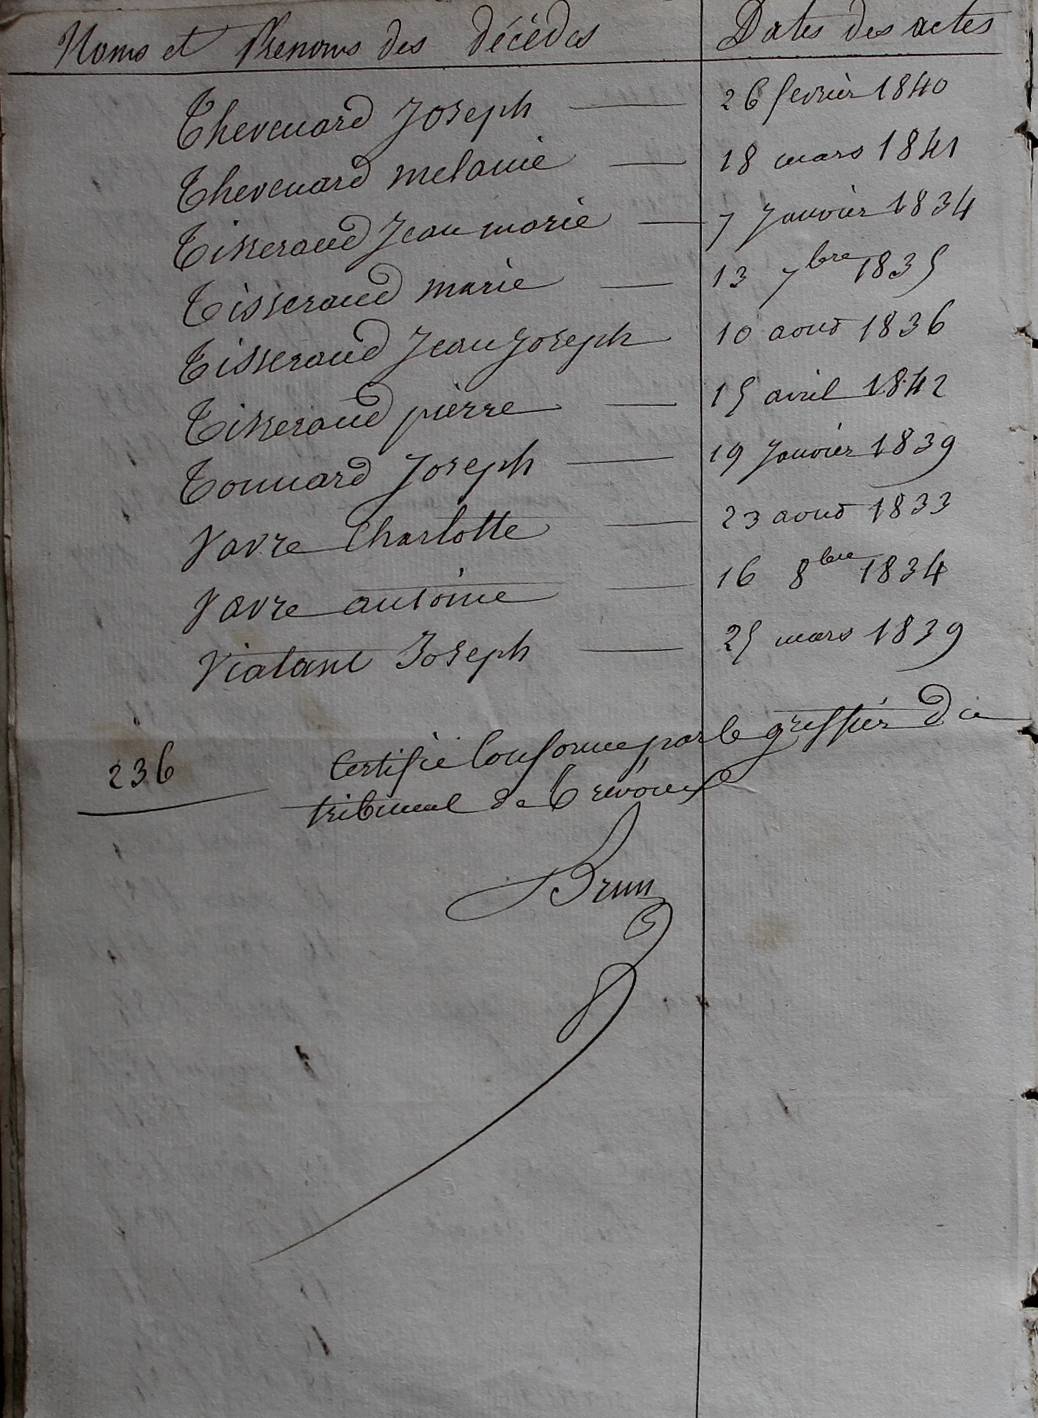 Noms et Prenoms des décédés Dates des actes
Thevenard Joseph — 26 fevrièr 1840
Thevenard melanie — 18 mars 1841
Tisserand Jean marie — 7 Janvièr 1834
Tisserand marie — 13 7bre 1835
Tisserand Jean Joseph 10 aout 1836
Tisserand pièrre — 15 avril 1842
Tonnard Joseph — 19 Janvièr 1839
Vavre Charlotte — 23 aout 1833
Vavre antoine — 16 8bre 1834
Vialant Joseph — 25 mars 1839
236 Certifié Conforme par le greffièr du
tribunal de Trévoux
Brun